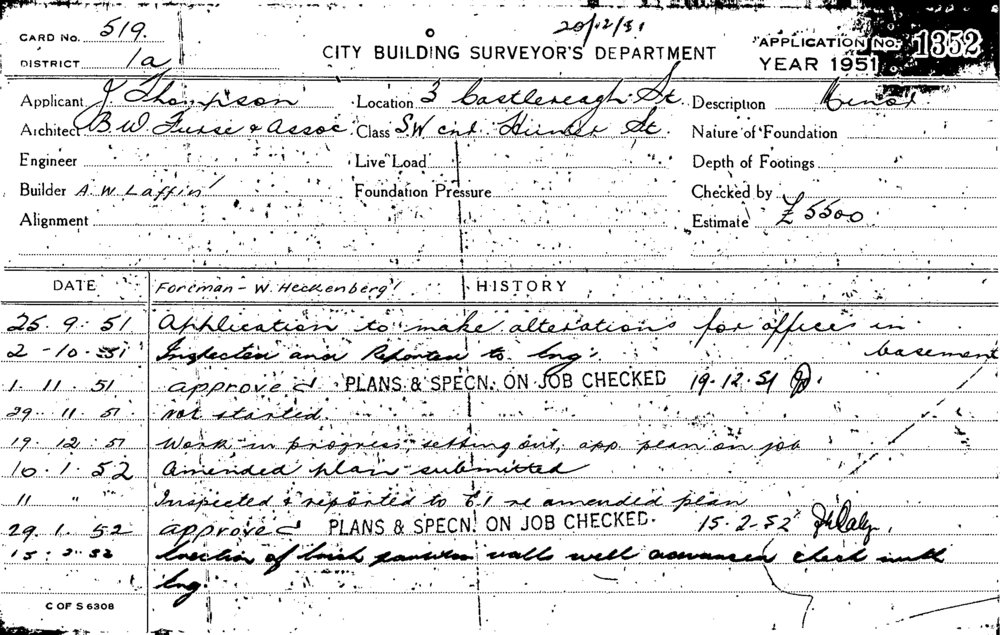 CARD No. 519.
20/12/51
CITY BUILDING SURVEYOR'S DEPARTMENT
APPLICATION No. 1352
DISTRICT 1a
YEAR 1951
Applicant J Thompson Location 3 Castlereagh St. Description Minor
Architect B. W. Furse & Assoc Class S.W cnr. Hunter St. Nature of Foundation
Engineer Live Load Depth of Footings
Builder A W Laffin Foundation Pressure Checked by
Alignment Estimate £ 5500
DATE Foreman - W. Heckenberg HISTORY
25. 9. 51 Application to make alterations for offices in
basement
2 - 10. 51 Inspected and Reported to Eng.
1. 11. 51 approved PLANS & SPECN. ON JOB CHECKED 19.12.51
29. 11. 51 not started.
19. 12. 51 Work in progress, setting out, app. plan on job
10. 1. 52 Amended plan submitted
11 " " Inspected & reported to E.I re amended plan
29. 1. 52 approved PLANS & SPECN. ON JOB CHECKED. 15-2-52 Daly.
15. 2. 52 Erection of brick partition walls well advanced check with
Eng.
C OF S 6308